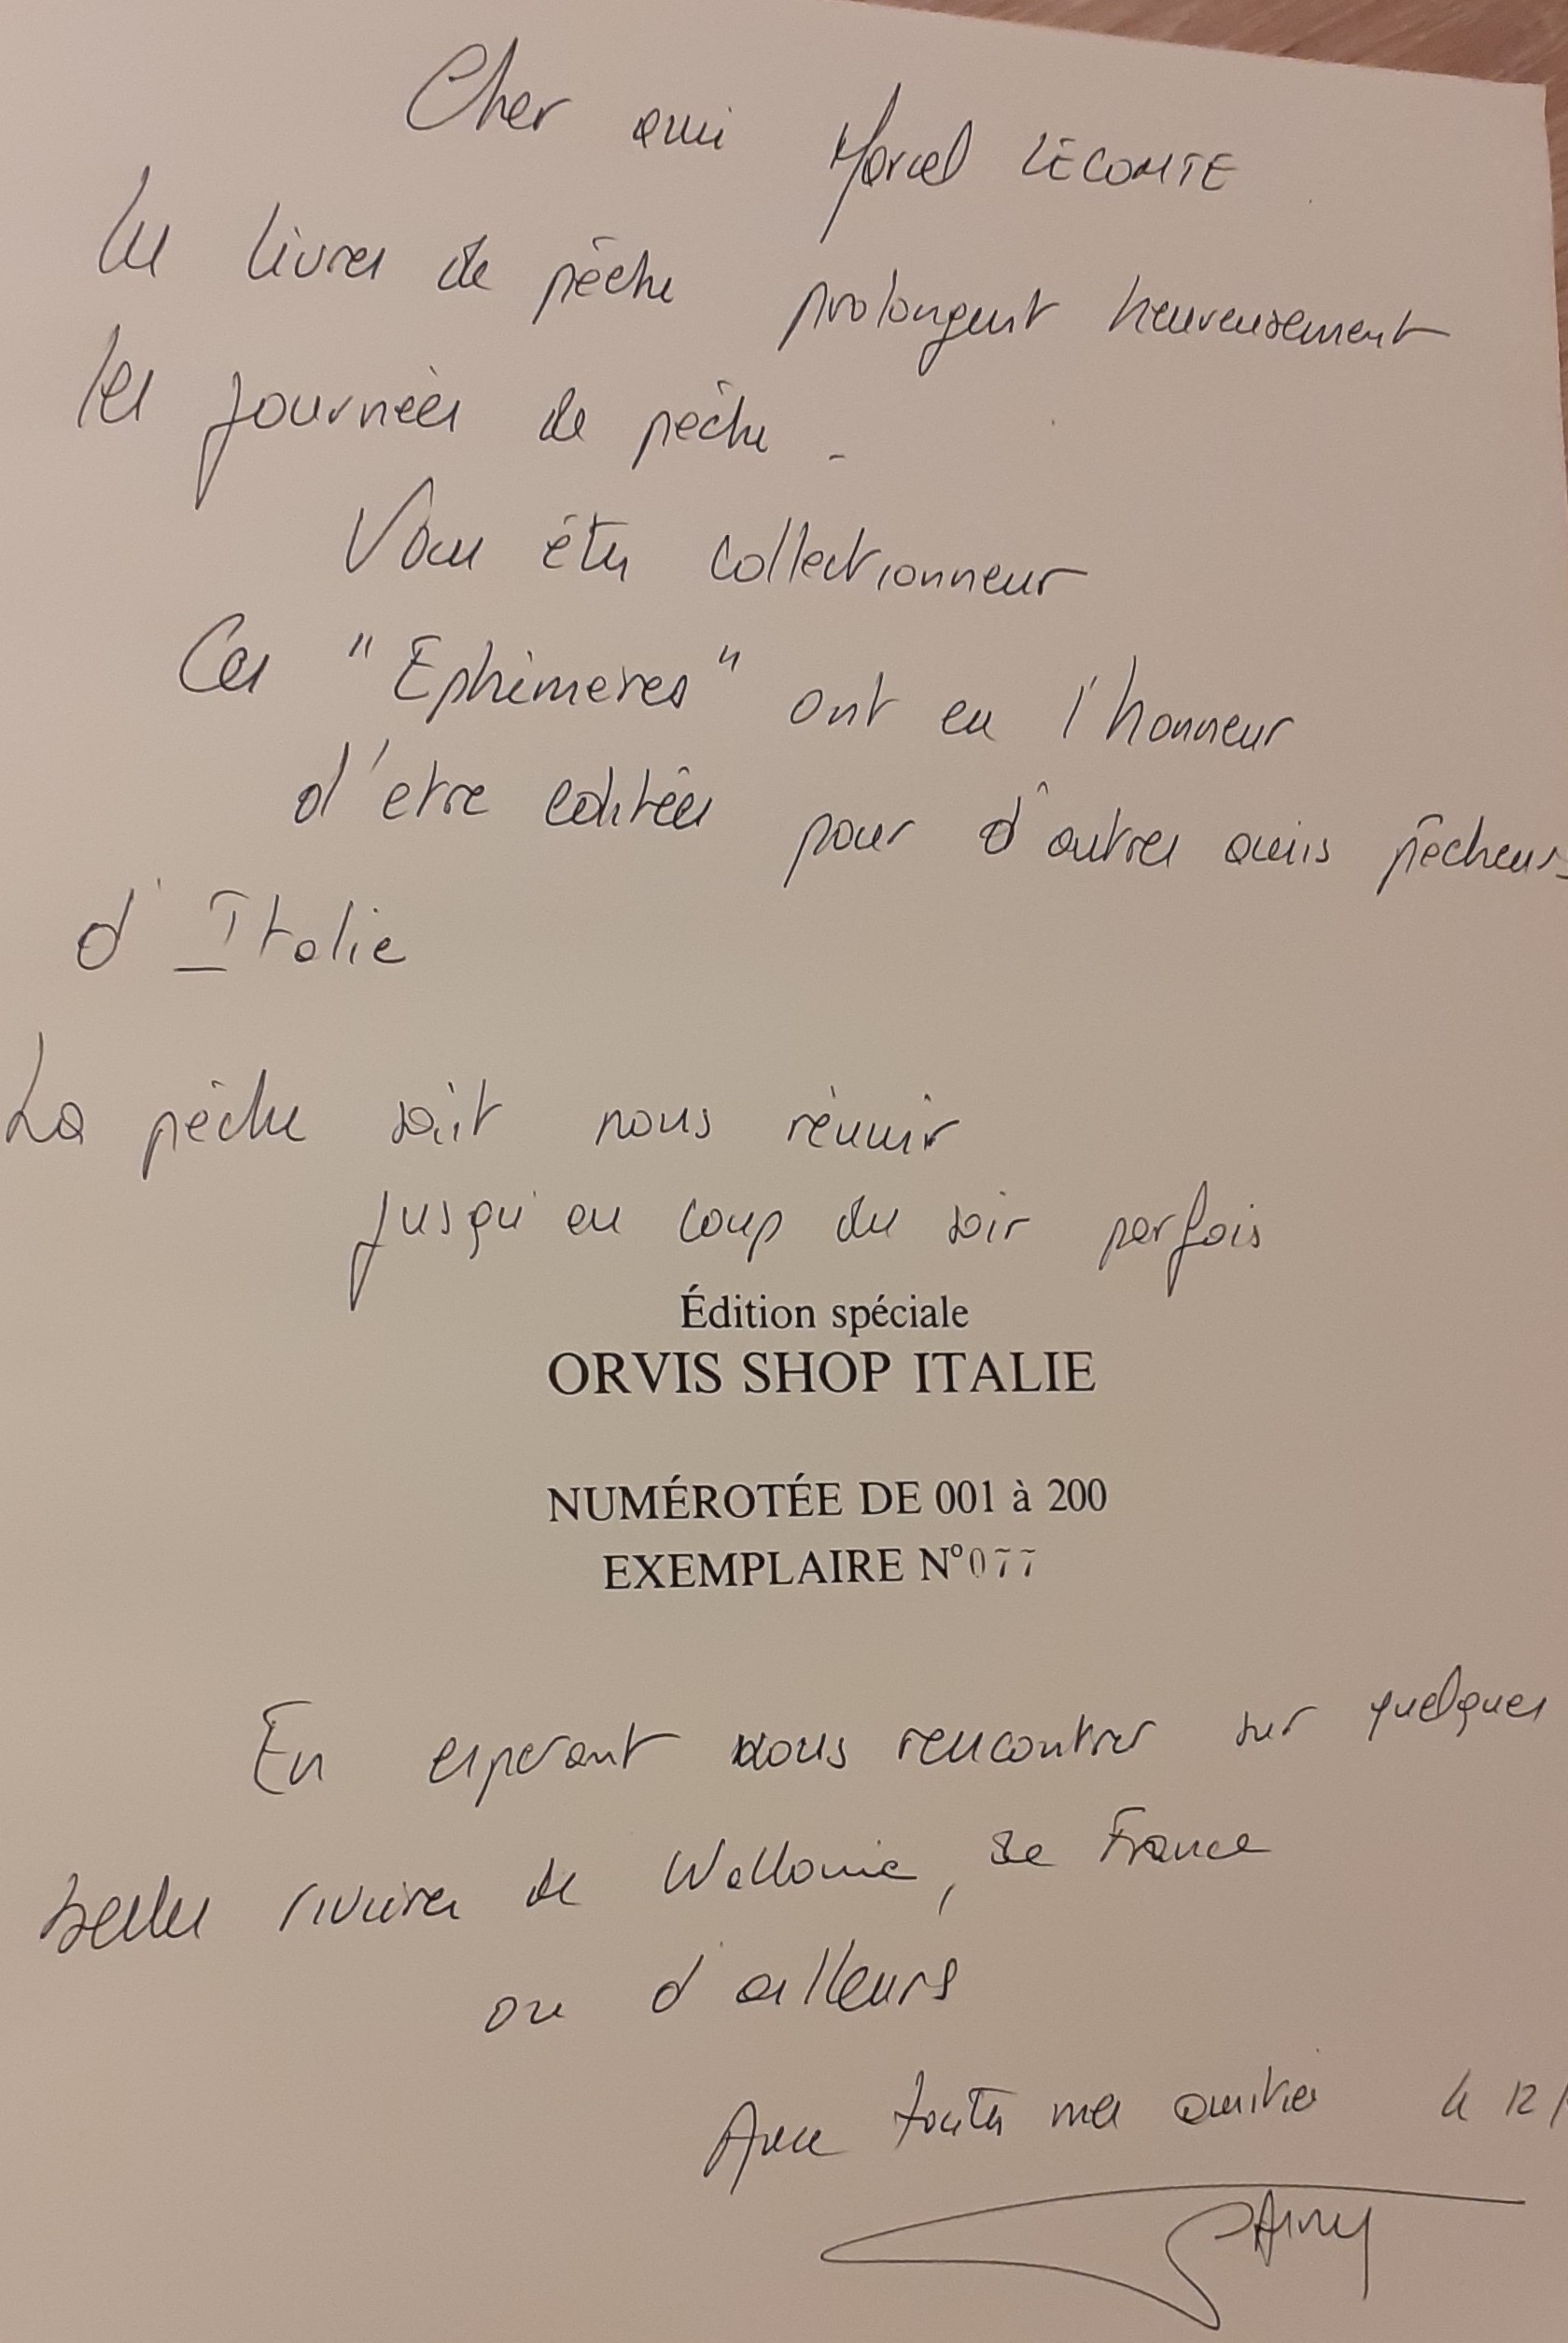 Cher ami Marcel LECOMTE
Les livres de pêche prolongent heureusement
les journées de pêche.
Vous êtes collectionneur
Ces "Ephémères" ont eu l'honneur
d'etre editées pour d'autres amis pêcheurs
d'Italie
La pêche sait nous réunir
jusqu'au coup du soir parfois
Édition spéciale
ORVIS SHOP ITALIE
NUMÉROTÉE DE 001 à 200
EXEMPLAIRE N° 077
En esperant vous rencontrer sur quelques
belles rivieres de Wallonie, de France
ou d'ailleurs
Avec toutes mes amitiés le 12/